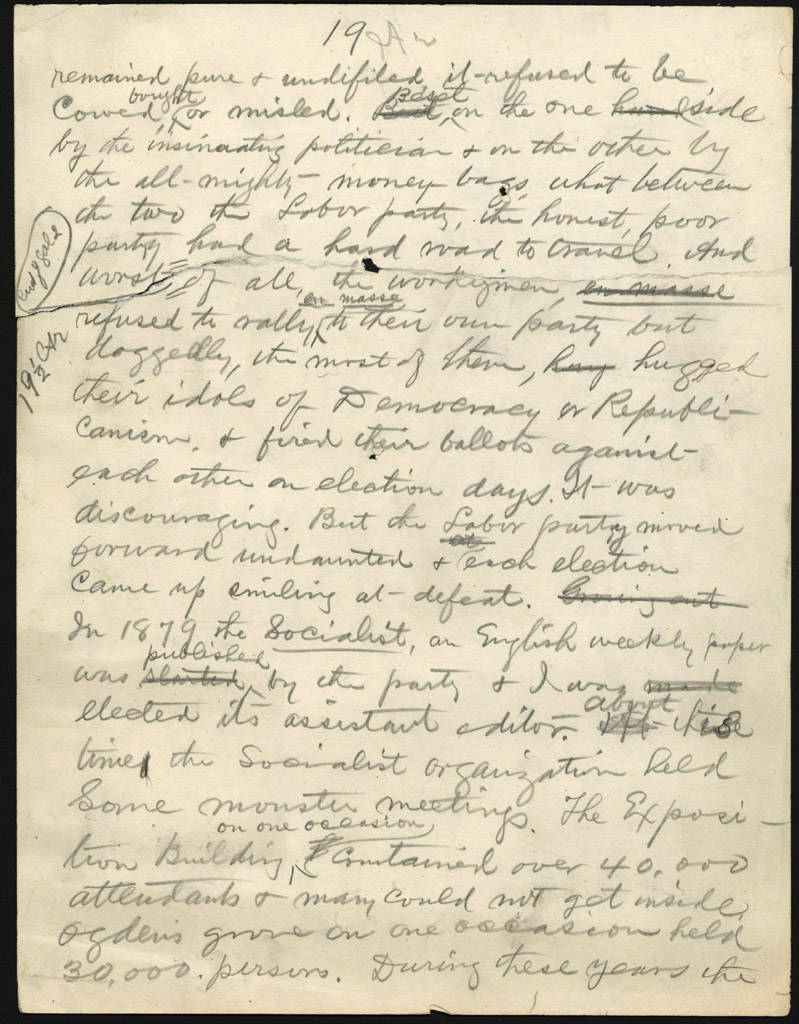 19
remained pure & undifiled, it refused to be
bought
Cowed, or misled. Beset
But, on the one hand side
by the insinuating politician & on the other by
the all-mighty money bags, what between
the two the Labor party, the honest, poor
party had a hard road to travel. And
worst of all, the workingmen, en masse
en masse
refused to rally, to their own party but
19 1/2
doggedly, the most of them, hung hugged
their idols of Democracy or Republi-
canism, & fired their ballots against
each other on election days. It was
discouraging. But the Labor party moved
forward undaunted & each election
came up smiling at defeat. Growing out
In 1879 the Socialist, an English weekly paper
published
was started, by the party & I was made
elected its assistant editor. about this
time the Socialist organization held
Some monster meetings. The Exposi-
on one occasion
tion Building, contained over 40,000
attendants & many could not get inside.
Ogden's grove on one occasion held
30,000. persons. During these years the